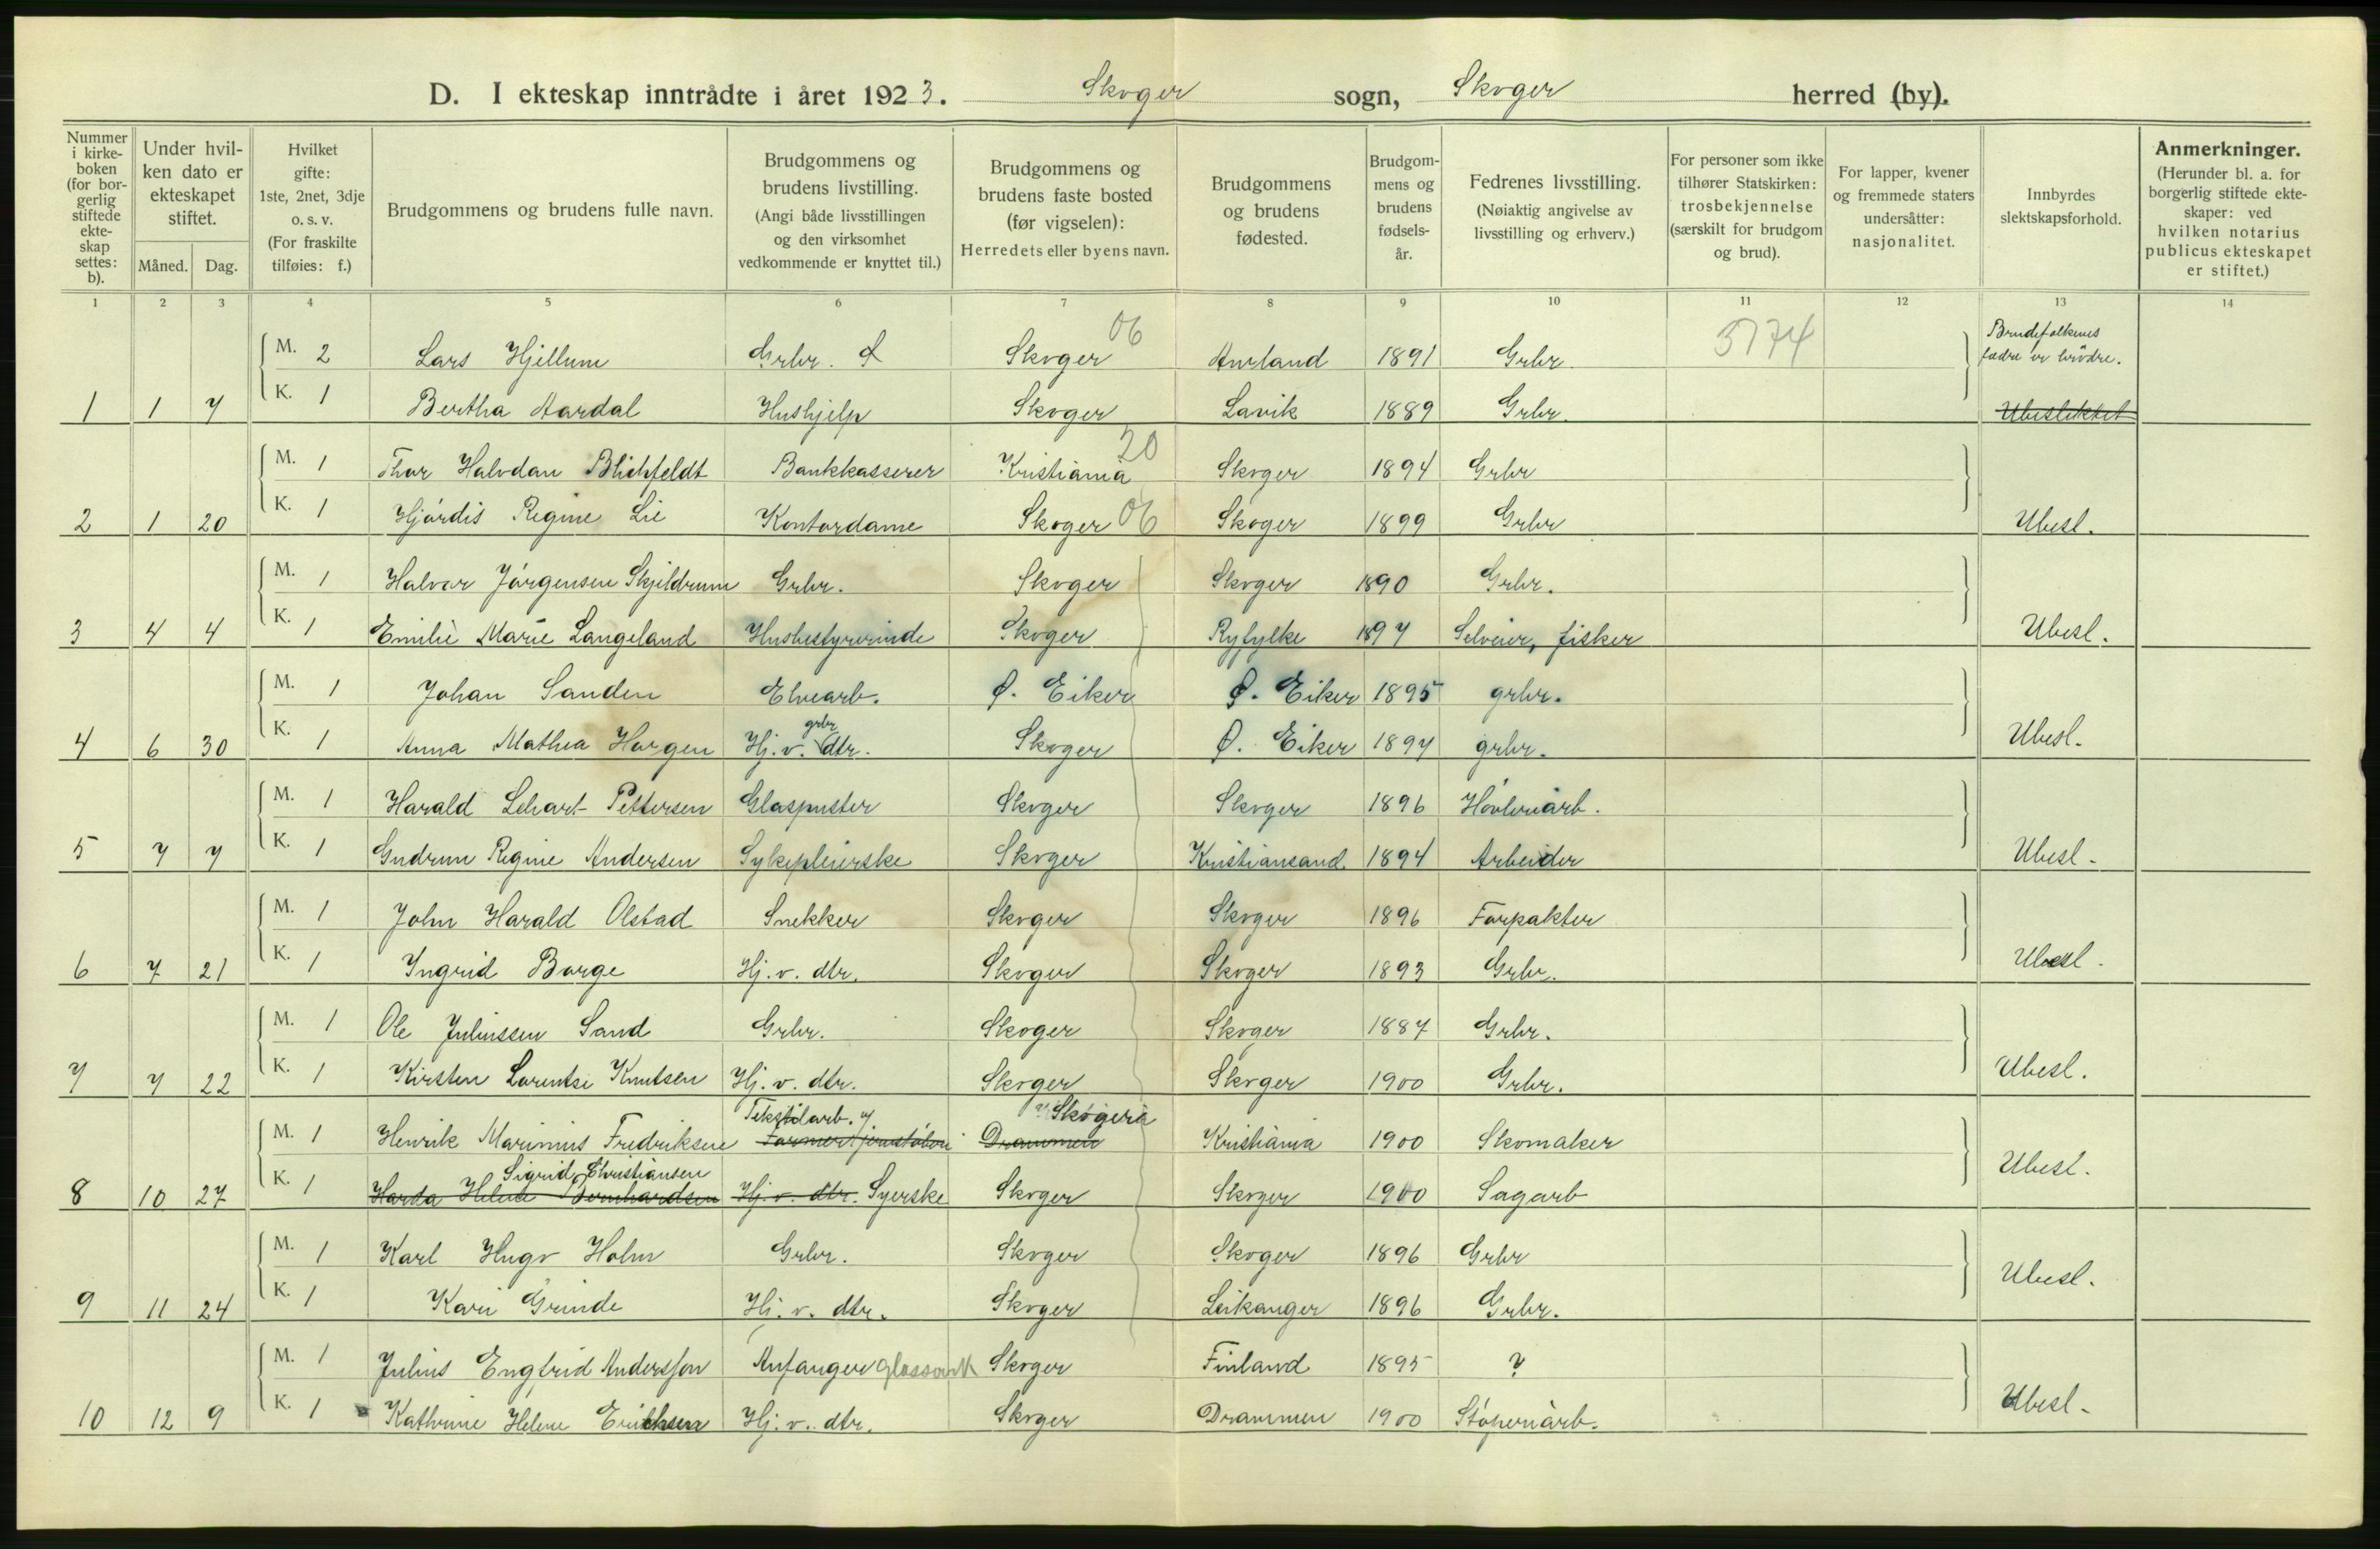 D. I ekteskap inntrådte i året 1923. Skoger sogn, Skoger herred (by).
Nummer i kirke-boken (for bor-gerlig stiftede ekte-skap settes: b).
Under hvil-ken dato er ekteskapet stiftet.
Måned. Dag.
Hvilket gifte: 1ste, 2net, 3dje o. s. v. (For fraskilte tilføies: f.)
Brudgommens og brudens fulle navn.
Brudgommens og brudens livstilling. (Angi både livsstillingen og den virksomhet vedkommende er knyttet til.)
Brudgommens og brudens faste bosted (før vigselen): Herredets eller byens navn.
Brudgommens og brudens fødested.
Brudgom-mens og brudens fødsels-år.
Fedrenes livsstilling. (Nøiaktig angivelse av livsstilling og erhverv.)
For personer som ikke tilhører Statskirken: trosbekjennelse (særskilt for brudgom og brud).
For lapper, kvener og fremmede staters undersåtter: nasjonalitet.
Innbyrdes slektskapsforhold.
Anmerkninger. (Herunder bl. a. for borgerlig stiftede ekte-skaper: ved hvilken notarius publicus ekteskapet er stiftet.)
1 2 3 4 5 6 7 8 9 10 11 12 13 14
06 5174 Brudefolkenes
M. 2 Lars Hjellum Grbr. S Skoger Aurland 1891 Grbr. fædre er brödre.
1 1 7 K. 1 Bertha Aardal Hushjelp Skoger Lavik 1889 Grbr. Ubeslektet
20
M. 1 Thor Halvdan Blichfeldt Bankkasserer Kristiania Skoger 1894 Grbr
2 1 20 K. 1 Hjórdis Regine Lie Kontordame Skoger 06 Skoger 1899 Grbr Ubesl.
M. 1 Halvor Jórgensen Skjildrum Grbr. Skoger Skoger 1890 Grbr.
3 4 4 K. 1 Emilie Marie Langeland Husbestyrerinde Skoger Ryfylke 1897 Selveier, fisker Ubesl.
M. 1 Johan Sanden Elvearb. Ø. Eiker Ø. Eiker 1895 grbr.
grbr
4 6 30 K. 1 Anna Mathea Horgen Hj. v. dtr. Skoger Ø. Eiker 1897 grbr. Ubesl.
M. 1 Harald Lehart Pettersen Glaspuster Skoger Skoger 1896 Hövleriarb.
5 7 7 K. 1 Gudrun Regine Andersen Sykepleierske Skoger Kristiansand 1894 Arbeider Ubesl.
M. 1 John Harald Olstad Snekker Skoger Skoger 1896 Forpakter
6 7 21 K. 1 Ingrid Borge Hj. v. dtr. Skoger Skoger 1893 Grbr. Ubesl.
M. 1 Ole Juliussen Sand Grbr. Skoger Skoger 1887 Grbr.
7 7 22 K. 1 Kirsten Lorentse Knutsen Hj. v. dtr. Skoger Skoger 1900 Grbr. Ubesl.
Tekstilarb. Skoger
M. 1 Henrik Marinius Fredriksen Former Drammen Kristiania 1900 Skomaker
Sigrid Christiansen
8 10 27 K. 1 Harda Helene Bernhardsen Hj. v. dtr. Syerske Skoger Skoger 1900 Sagarb Ubesl.
M. 1 Karl Hugo Holm Grbr. Skoger Skoger 1896 Grbr
9 11 24 K. 1 Kari Grinde Hj. v. dtr. Skoger Leikanger 1896 Grbr. Ubesl.
M. 1 Julius Engfrid Andersson Anfanger glassverk Skoger Finland 1895 ?
10 12 9 K. 1 Kathrine Helene Erichsen Hj. v. dtr. Skoger Drammen 1900 Stóperiarb. Ubesl.